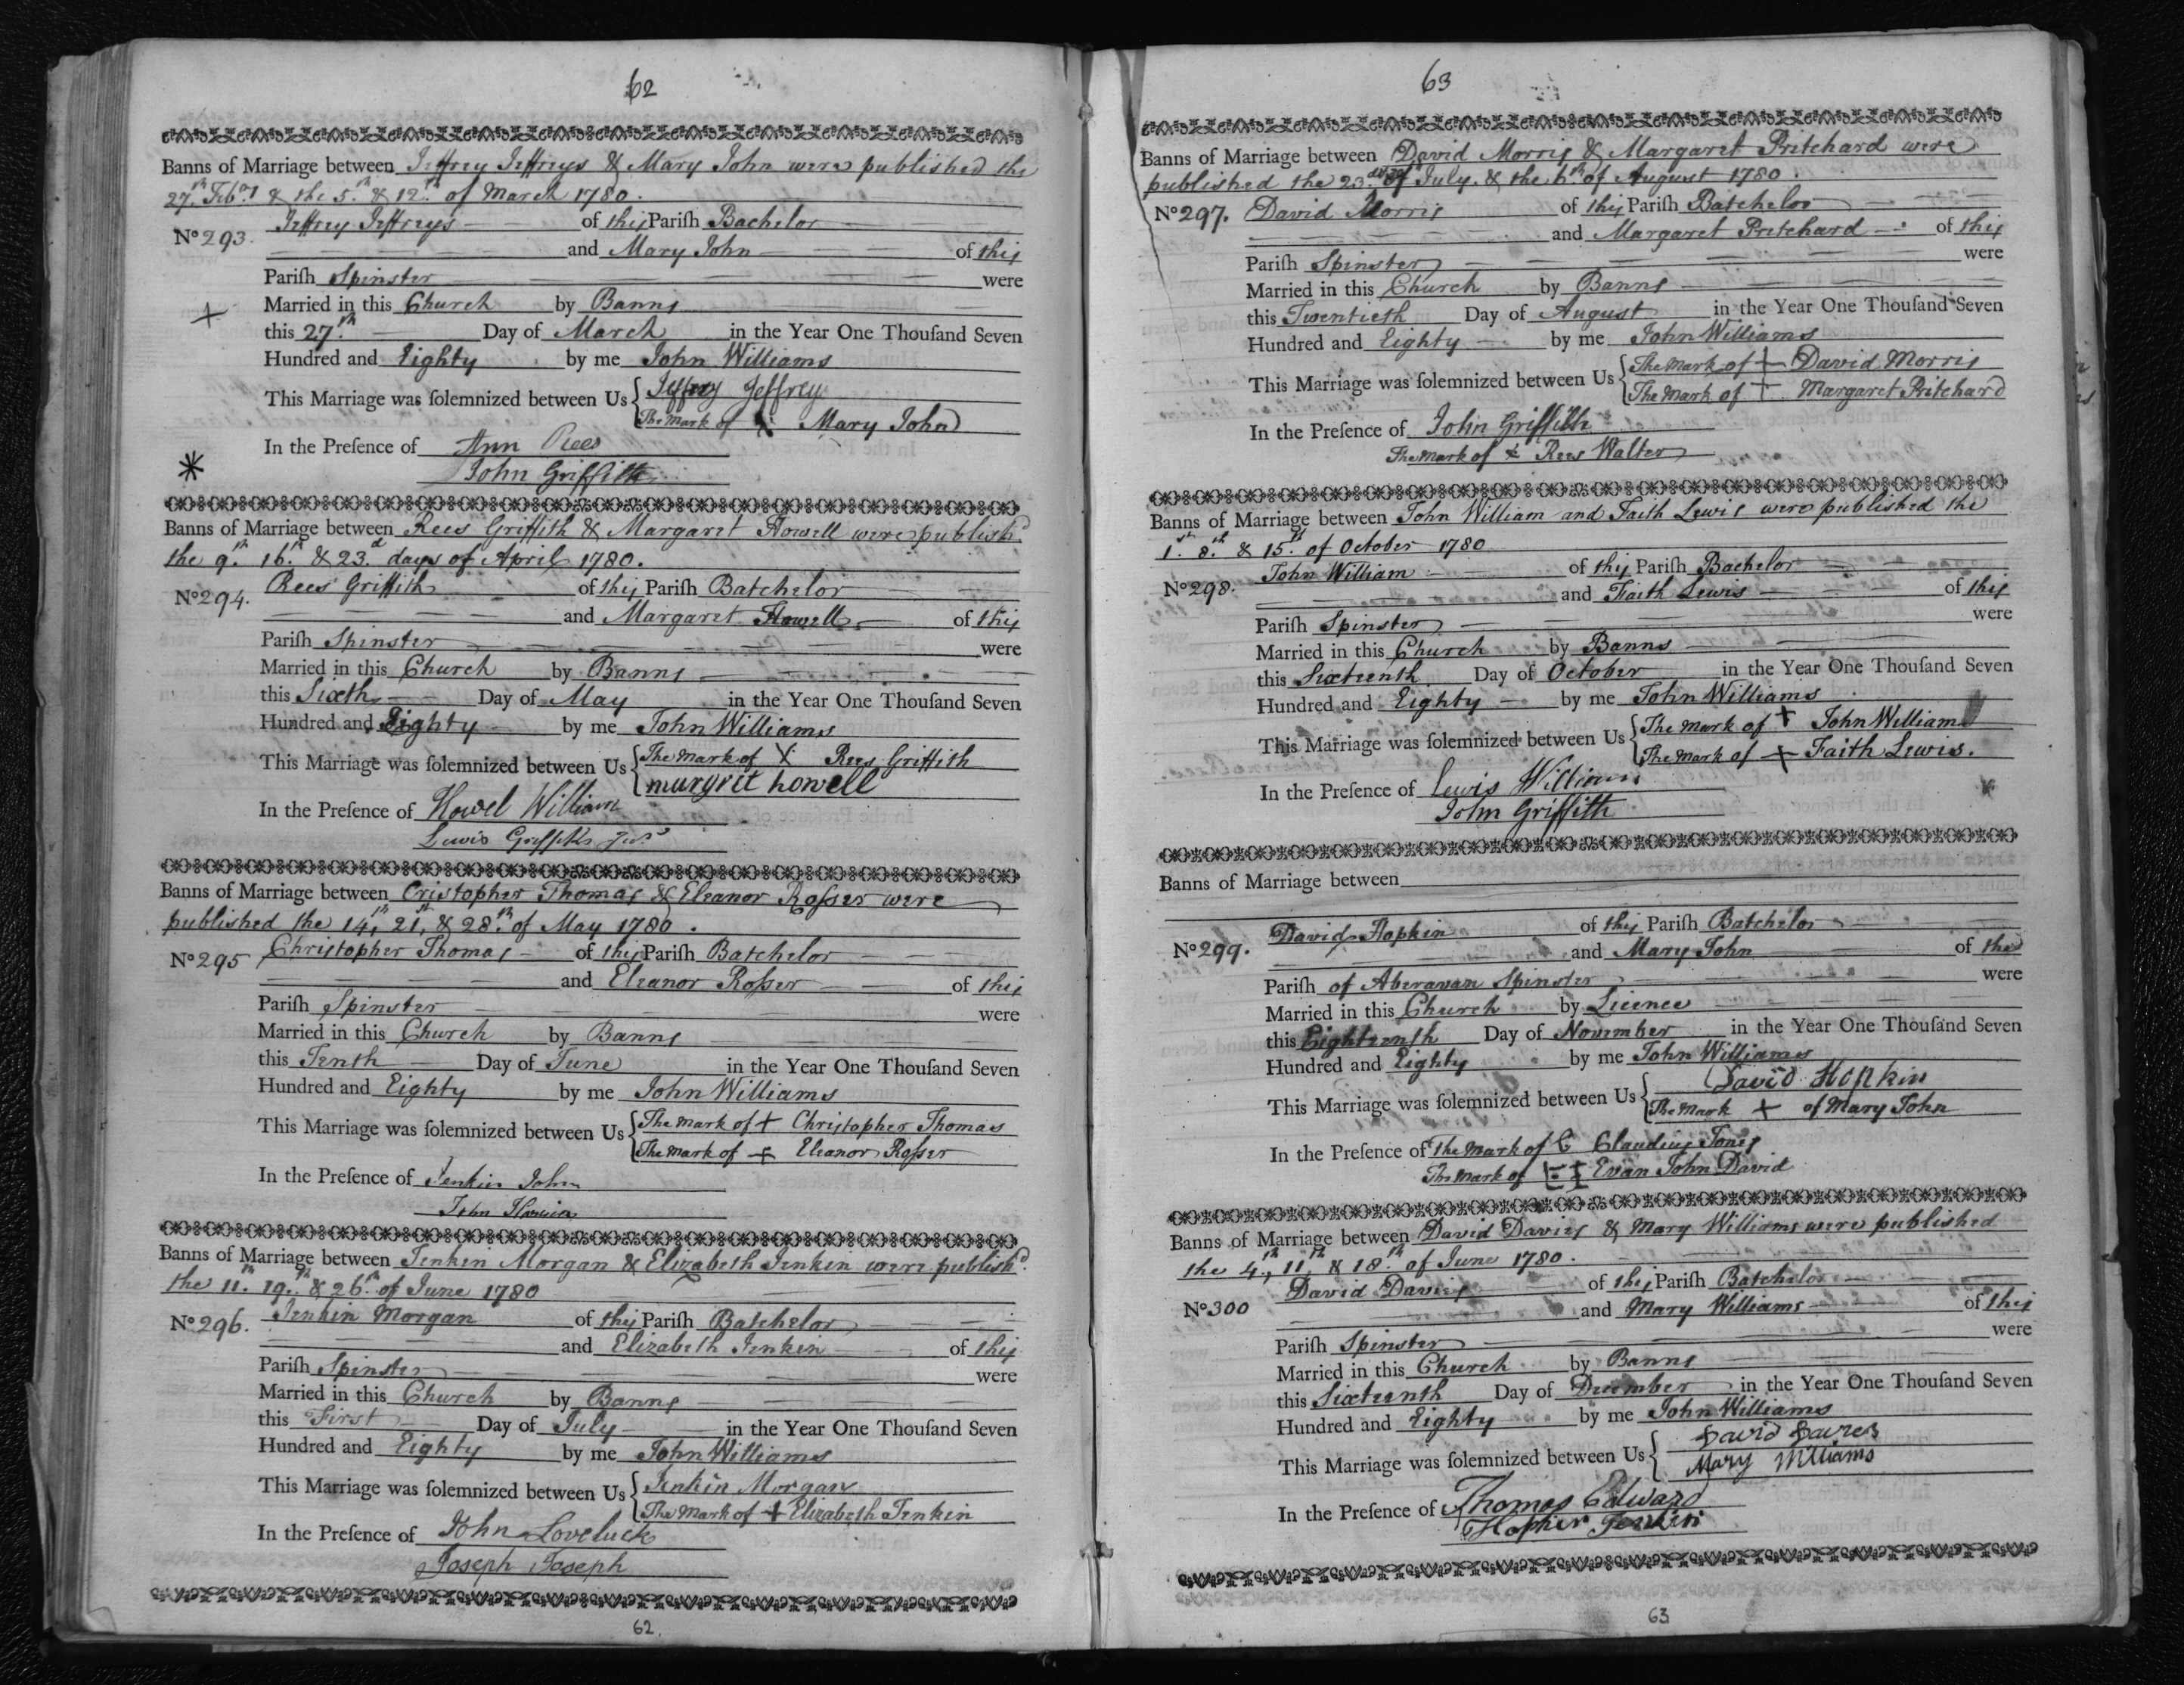 62
Banns of Marriage between Jeffrey Jeffreys & Mary John were published the
27th Feby & the 5th & 12th of March 1780.
No 293. Jeffrey Jeffreys of this Pariſh Bachelor
and Mary John of this
Pariſh Spinster were
Married in this Church by Banns
this 27th Day of March in the Year One Thouſand Seven
Hundred and Eighty by me John Williams
This Marriage was ſolemnized between Us Jeffrey Jeffreys
The Mark of x Mary John
In the Preſence of Ann Rees
John Griffith
Banns of Marriage between Rees Griffith & Margaret Howell were publishd
the 9th 16th & 23d days of April 1780.
No 294. Rees Griffith of this Pariſh Batchelor
and Margaret Howell of this
Pariſh Spinster were
Married in this Church by Banns
this Sixth Day of May in the Year One Thouſand Seven
Hundred and Eighty by me John Williams
This Marriage was ſolemnized between Us The Mark of X Rees Griffith
margret howell
In the Preſence of Howel William
Lewis Griffiths Junr
Banns of Marriage between Cristopher Thomas & Eleanor Roſser were
published the 14th, 21st, & 28th of May 1780.
No 295 Christopher Thomas of this Pariſh Batchelor
and Eleanor Roſser of this
Pariſh Spinster were
Married in this Church by Banns
this Tenth Day of June in the Year One Thouſand Seven
Hundred and Eighty by me John Williams
This Marriage was ſolemnized between Us The Mark of + Christopher Thomas
The Mark of + Eleanor Roſser
In the Preſence of Jenkin John
John
Banns of Marriage between Jenkin Morgan & Elizabeth Jenkin were publishd
the 11th 19th & 26th of June 1780
No 296. Jenkin Morgan of this Pariſh Batchelor
and Elizabeth Jenkin of this
Pariſh Spinster were
Married in this Church by Banns
this First Day of July in the Year One Thouſand Seven
Hundred and Eighty by me John Williams
This Marriage was ſolemnized between Us Jenkin Morgan
The Mark of + Elizabeth Jenkin
In the Preſence of John Loveluck
Joseph Joseph
62.
63
Banns of Marriage between David Morris & Margaret Pritchard were
published the 23d of July & the 6th of August 1780.
No 297. David Morris of this Pariſh Batchelor
and Margaret Pritchard of this
Pariſh Spinster were
Married in this Church by Banns
this Twentieth Day of August in the Year One Thouſand Seven
Hundred and Eighty by me John Williams
This Marriage was ſolemnized between Us The Mark of + David Morris
The Mark of + Margaret Pritchard
In the Preſence of John Griffith
The Mark of x Rees Walter
Banns of Marriage between John William and Faith Lewis were published the
1st 8th & 15th of October 1780
No 298. John William of this Pariſh Bachelor
and Faith Lewis of this
Pariſh Spinster were
Married in this Church by Banns
this Sixteenth Day of October in the Year One Thouſand Seven
Hundred and Eighty by me John Williams
This Marriage was ſolemnized between Us The Mark of + John William
The Mark of + Faith Lewis.
In the Preſence of Lewis William
John Griffith
Banns of Marriage between
No 299. David Hopkin of this Pariſh Batchelor
and Mary John of the
Pariſh of Aberavan Spinster were
Married in this Church by Licence
this Eighteenth Day of November in the Year One Thouſand Seven
Hundred and Eighty by me John Williams
This Marriage was ſolemnized between Us David Hopkin
The Mark + of Mary John
In the Preſence of The Mark of C Claudius Jones
The Mark of Evan John David
Banns of Marriage between David Davies & Mary Williams were published
the 4th, 11th, & 18th of June 1780.
No 300 David Davies of this Pariſh Batchelor
and Mary Williams of this
Pariſh Spinster were
Married in this Church by Banns
this Sixteenth Day of December in the Year One Thouſand Seven
Hundred and Eighty by me John Williams
This Marriage was ſolemnized between Us David Davies
Mary Williams
In the Preſence of Thomas Edward
Hopkin Jenkin
63